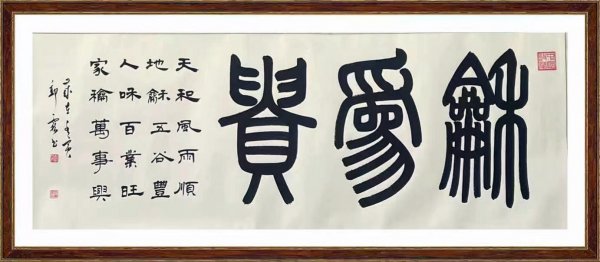 龢爲貴
天和風雨順
地龢五谷豐
人咊百業旺
家龢萬事興